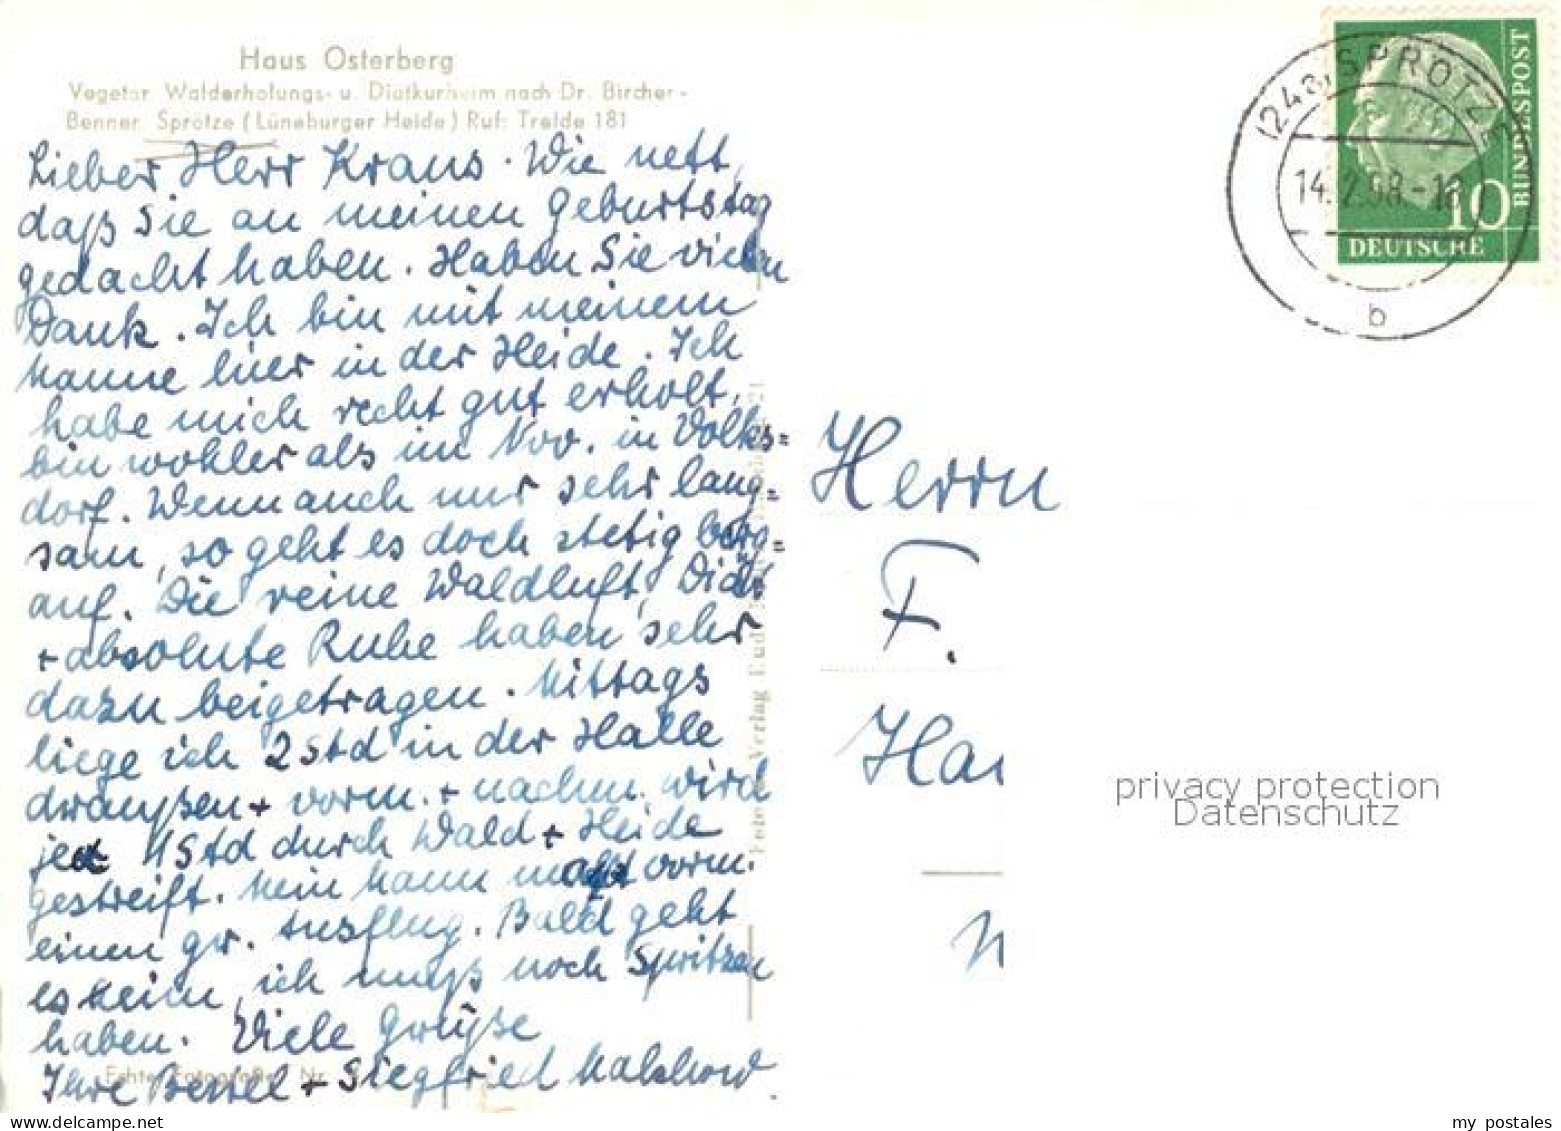 Haus Osterberg
Vegetar. Walderholungs- u. Diätkurheim nach Dr. Bircher-
Benner, Sprötze (Lüneburger Heide) Ruf: Trelde 181
Lieber Herr Kraus. Wie nett,
daß Sie an meinen Geburtstag
gedacht haben. Haben Sie vielen
Dank. Ich bin mit meinem
Manne hier in der Heide. Ich
habe mich recht gut erholt,
bin wohler als im Nov. in Volks=
dorf. Wenn auch nur sehr lang=
sam, so geht es doch stetig berg=
auf. Die reine Waldluft, Diät
+ absolute Ruhe haben sehr
dazu beigetragen. Mittags
liege ich 2 Std in der Halle
draußen + vorm. + nachm. wird
je 1 Std durch Wald + Heide
gestreift. Mein Mann macht vorm.
einen gr. Ausflug. Bald geht
es heim, ich muß noch Spritzen
haben. Viele Grüße
Ihre + Siegfried Malchow.
Echte Fotografie Nr.
Foto u. Verlag Rud.
(24a) SPRÖTZE
14.2.58-18
b
10
DEUTSCHE
BUNDESPOST
Herrn
F.
Ha
privacy protection
Datenschutz
my postales